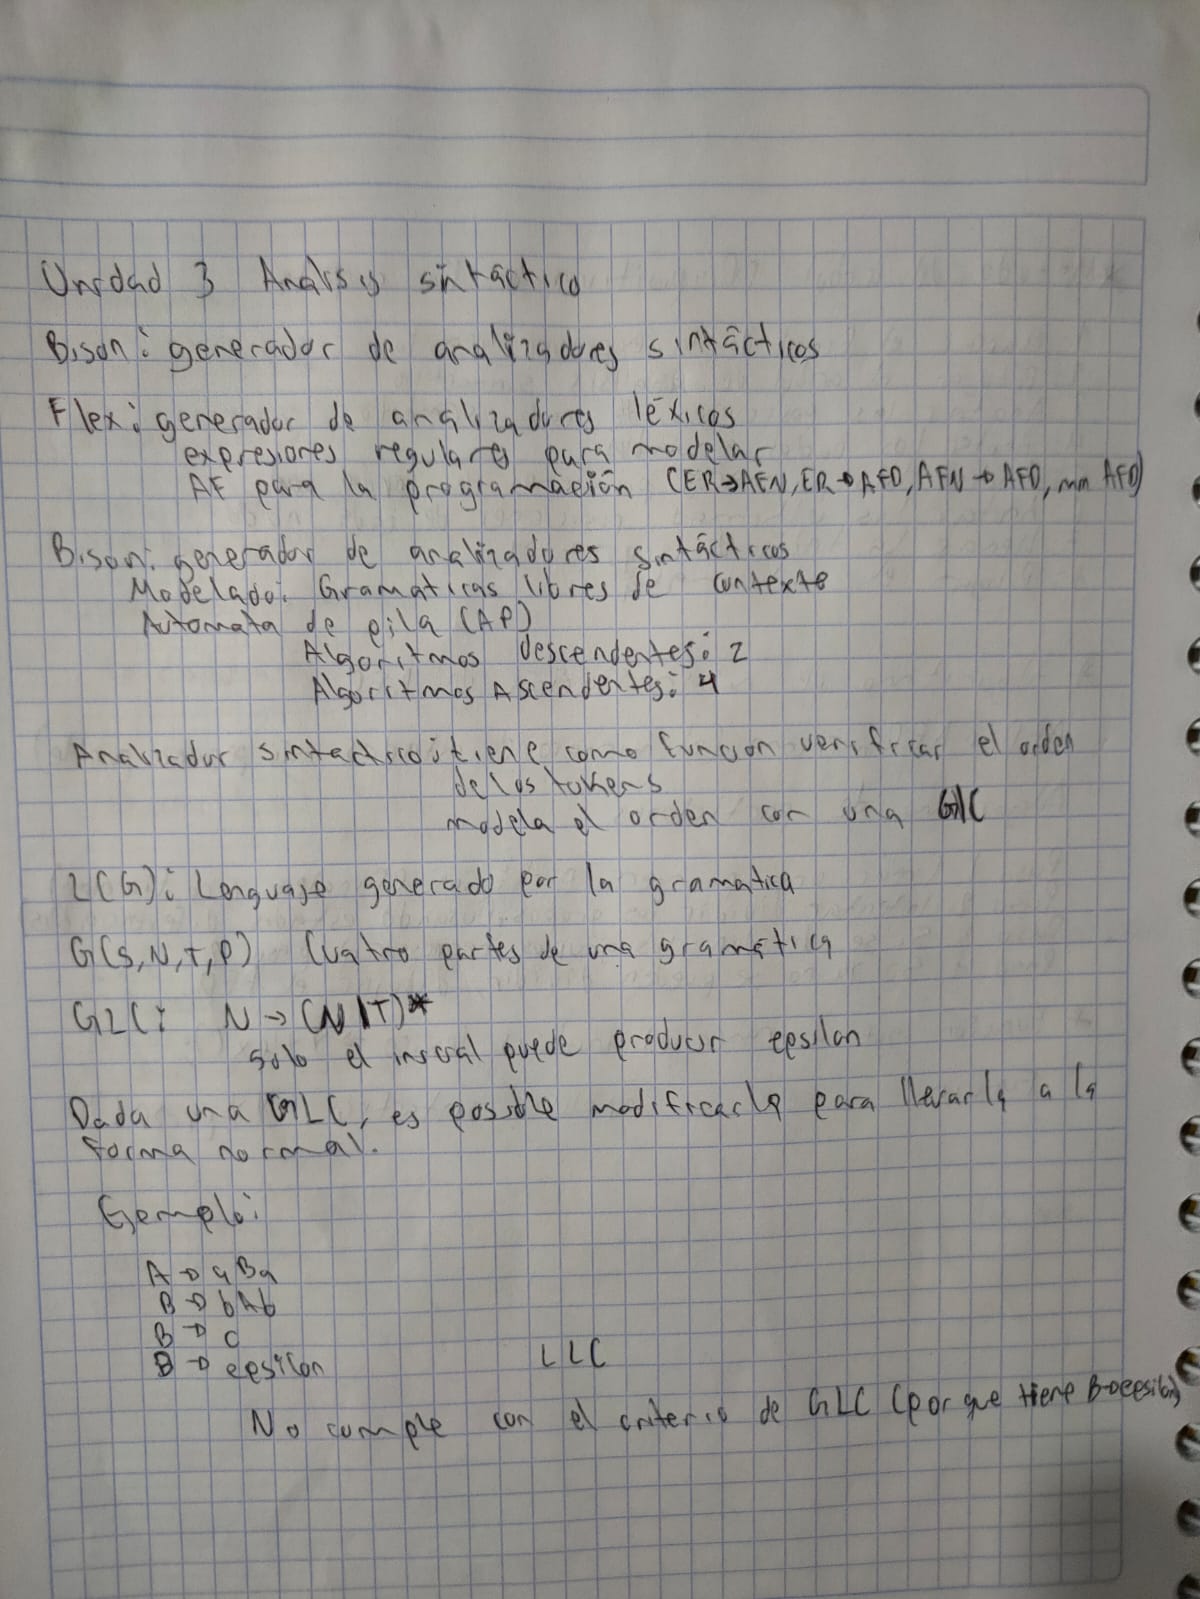 Unidad 3 Análisis sintáctico
Bison: generador de analizadores sintácticos
Flex: generador de analizadores léxicos
expresiones regulares para modelar
AF para la programación (ER→AFN, ER→AFD, AFN→AFD, min AFD)
Bison: generador de analizadores sintácticos
Modelado: Gramáticas libres de contexto
Automata de pila (AP)
Algoritmos descendentes: 2
Algoritmos Ascendentes: 4
Analizador sintactico: tiene como función verificar el orden
de los tokens
modela el orden con una GLC
L(G): Lenguaje generado por la gramatica
G(S,N,T,P) Cuatro partes de una gramática
GLC: N → (N|T)*
solo el inicial puede producir epsilon
Dada una GLC, es posible modificarla para llevarla a la
forma normal.
Ejemplo:
A → aBa
B → bAb
B → c
B → epsilon LLC
No cumple con el criterio de GLC (por que tiene B→epsilon)